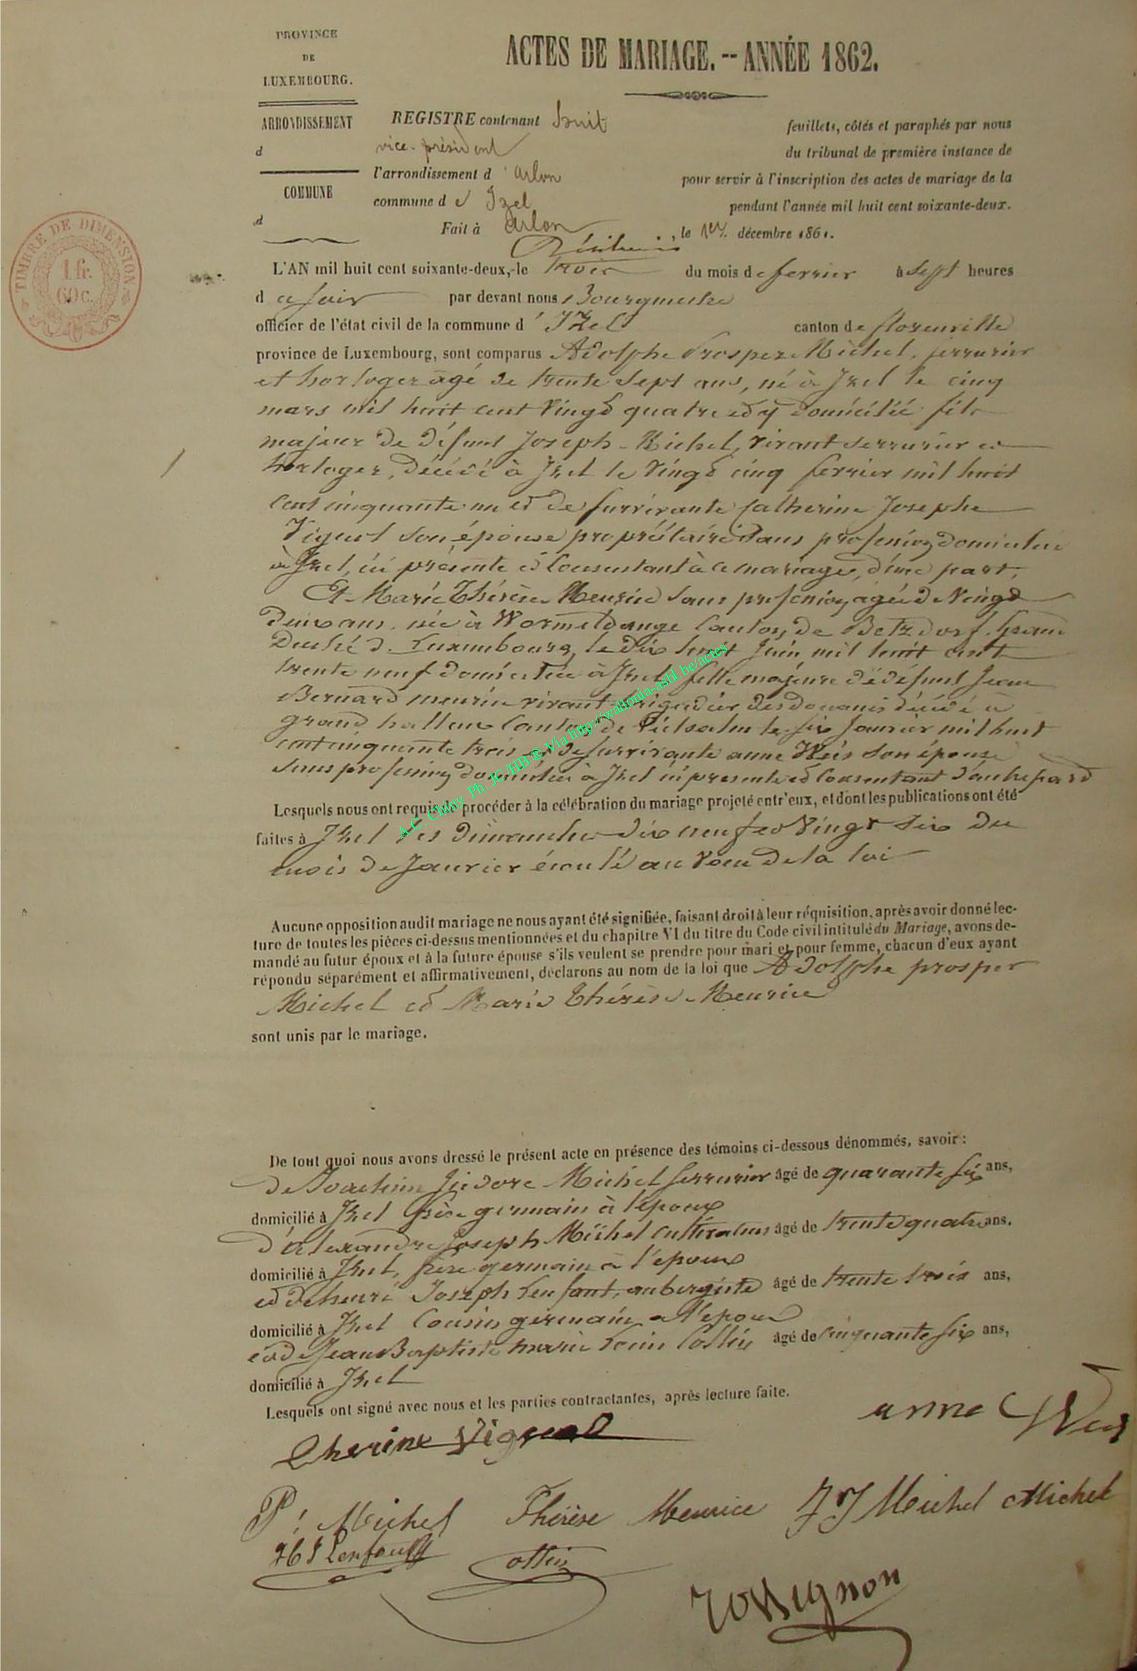 PROVINCE
DE
LUXEMBOURG.
ACTES DE MARIAGE. -- ANNÉE 1862.
ARRONDISSEMENT
d
COMMUNE
d
REGISTRE contenant huit feuillets, côtés et paraphés par nous
vice-président du tribunal de première instance de
l'arrondissement d'Arlon pour servir à l'inscription des actes de mariage de la
commune d'Izel pendant l'année mil huit cent soixante-deux.
Fait à Arlon, le 1er décembre 1861.
TIMBRE DE DIMENSION
1 fr.
60 c.
L'AN mil huit cent soixante-deux, le trois du mois de fevrier à sept heures
du soir par devant nous Bourgmestre
officier de l'état civil de la commune d'Izel canton de florenville
province de Luxembourg, sont comparus Adolphe Prosper Michel, serrurier
et horloger âgé de trente sept ans, né à Izel le cinq
mars mil huit cent vingt quatre et y domicilié fils
majeur de défunt Joseph Michel, vivant serrurier et
horloger, décédé à Izel le vingt cinq fevrier mil huit
cent cinquante un et de survivante Catherine Josephe
son épouse propriétaire sans profession domiciliée
à Izel, ici présente et consentant à ce mariage, d'une part,
Et Marie Thérèse Meurice sans profession, âgée de vingt
deux ans, née à Wormeldange Canton de Betzdorf, grand
Duché de Luxembourg, le dix huit juin mil huit cent
trente neuf domiciliée à Izel, fille majeure de défunt Jean
Bernard meurice vivant brigadier des douanes décédé à
grand halleux Canton de Vielsalm le six janvier mil huit
cent cinquante trois et de survivante anne Weis son épouse
sans profession domiciliée à Izel ici presente et consentant d'autre part
A.C. Chiny Ph. JC/HB © Via http://wallonia-asbl.be/actes
Lesquels nous ont requis de procéder à la célébration du mariage projeté entr'eux, et dont les publications ont été
faites à Izel les dimanches dix neuf et vingt six du
mois de Janvier écoulé au voeu de la loi
Aucune opposition audit mariage ne nous ayant été signifiée, faisant droit à leur réquisition, après avoir donné lec-
ture de toutes les pièces ci-dessus mentionnées et du chapitre VI du titre du Code civil intitulé du Mariage, avons de-
mandé au futur époux et à la future épouse s'ils veulent se prendre pour mari et pour femme, chacun d'eux ayant
répondu séparément et affirmativement, déclarons au nom de la loi que Adolphe prosper
Michel et Marie Thérèse Meurice
sont unis par le mariage.
De tout quoi nous avons dressé le présent acte en présence des témoins ci-dessous dénommés, savoir :
de Joachim Isidore Michel serrurier âgé de quarante six ans,
domicilié à Izel frère germain à l'époux
d'Alexandre Joseph Michel cultivateur âgé de trente quatre ans.
domicilié à Izel, frère germain à l'époux
et de henri Joseph Lenfant, aubergiste âgé de trente trois ans,
domicilié à Izel Cousin germain à l'époux
et de Jean Baptiste marie Collin âgé de cinquante six ans,
domicilié à Izel
Lesquels ont signé avec nous et les parties contractantes, après lecture faite.
anne Weis
P. Michel Thérèse Meurice J I Michel Michel
H J Lenfant
Rossignon